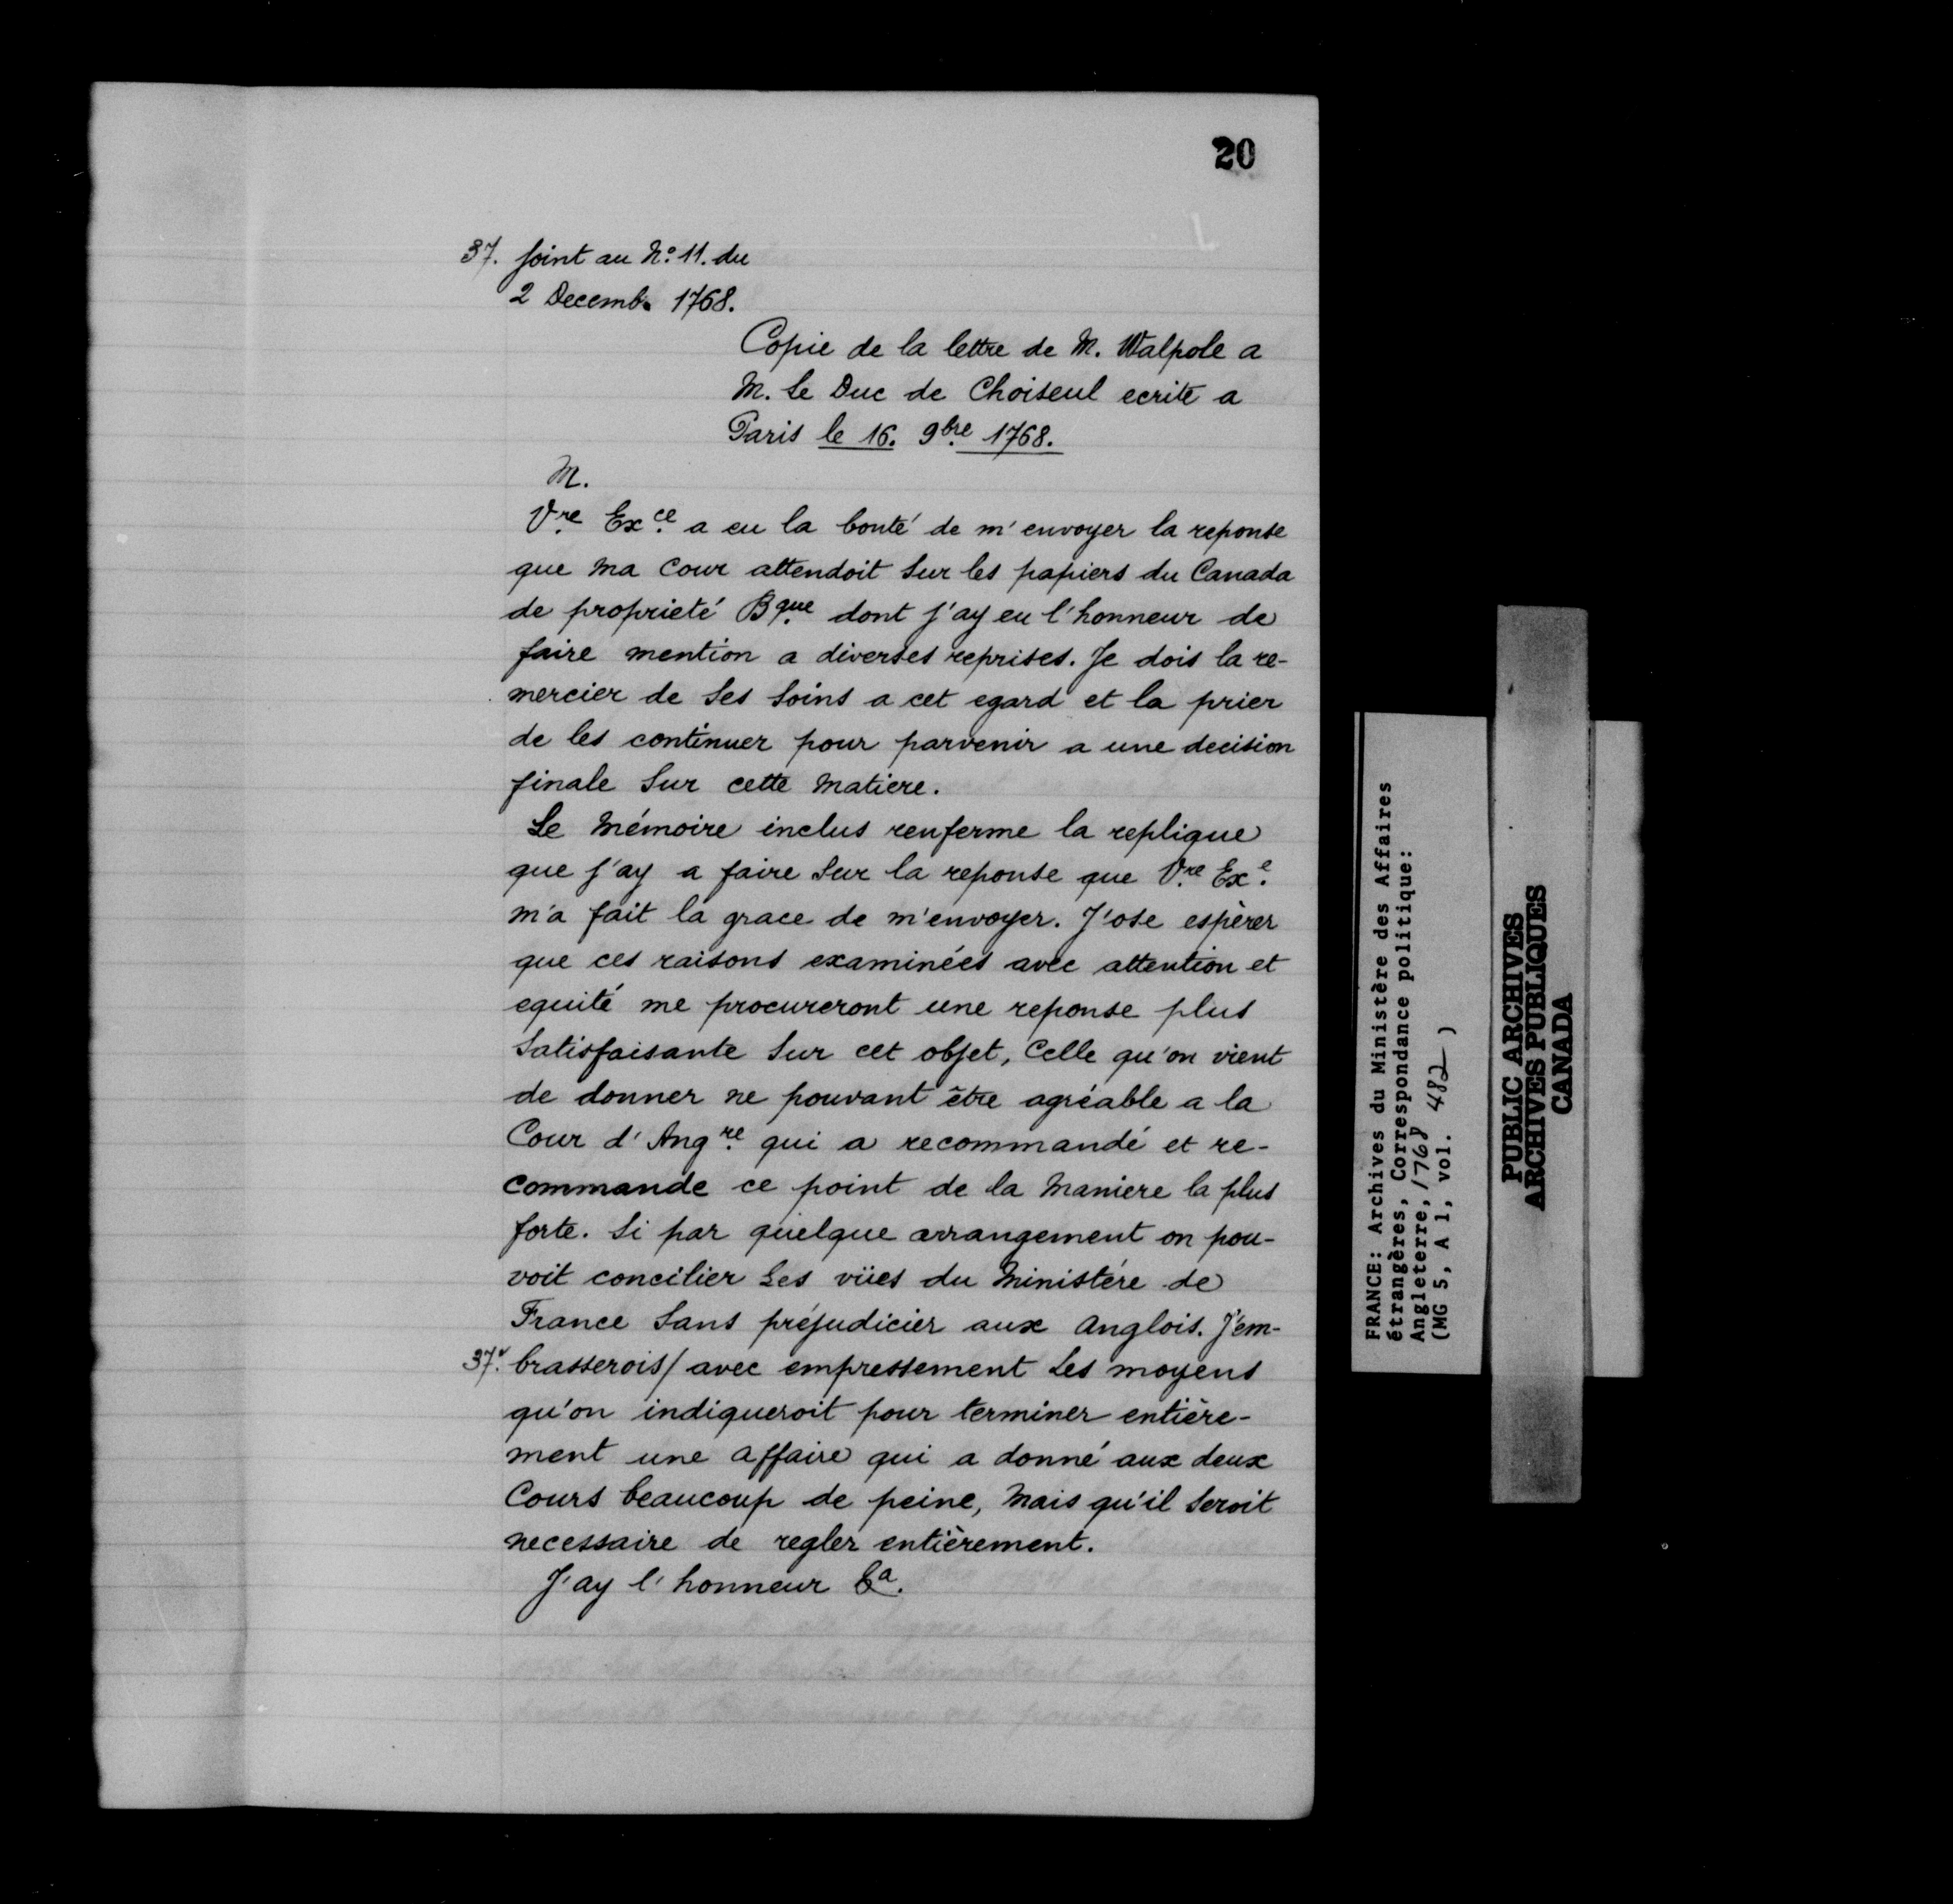 20
37. Joint au N.º 11. du
2 Decemb. 1768.
Copie de la lettre de M. Walpole a
M. Le Duc de Choiseul ecrite a
Paris le 16. 9bre 1768.
M.
Vre Exce a eu la bonté de m'envoyer la reponse
que Ma Cour attendoit Sur les papiers du Canada
de proprieté Bque dont j'ay eu l'honneur de
faire mention a diverses reprises. Je dois la re-
mercier de Ses Soins a cet egard et la prier
de les continuer pour parvenir a une decision
finale Sur cette Matiere.
Le Mémoire inclus renferme la replique
que j'ay a faire Sur la reponse que Vre Exe
m'a fait la grace de m'envoyer. J'ose espèrer
que ces raisons examinées avec attention et
equité me procureront une reponse plus
Satisfaisante Sur cet objet, Celle qu'on vient
de donner ne pouvant être agréable a la
Cour d'Angre qui a recommandé et re-
commande ce point de la Maniere la plus
forte. Si par quelque arrangement on pou-
voit concilier Les vües du Ministére de
France Sans préjudicier aux Anglois. J'em-
37.v brasserois/ avec empressement Les moyens
qu'on indiqueroit pour terminer entière-
ment une affaire qui a donné aux deux
Cours beaucoup de peine, Mais qu'il Seroit
necessaire de regler entièrement.
J'ay l'honneur &a.
FRANCE: Archives du Ministère des Affaires
étrangères, Correspondance politique:
Angleterre, 1768
(MG 5, A 1, vol. 482 )
PUBLIC ARCHIVES
ARCHIVES PUBLIQUES
CANADA